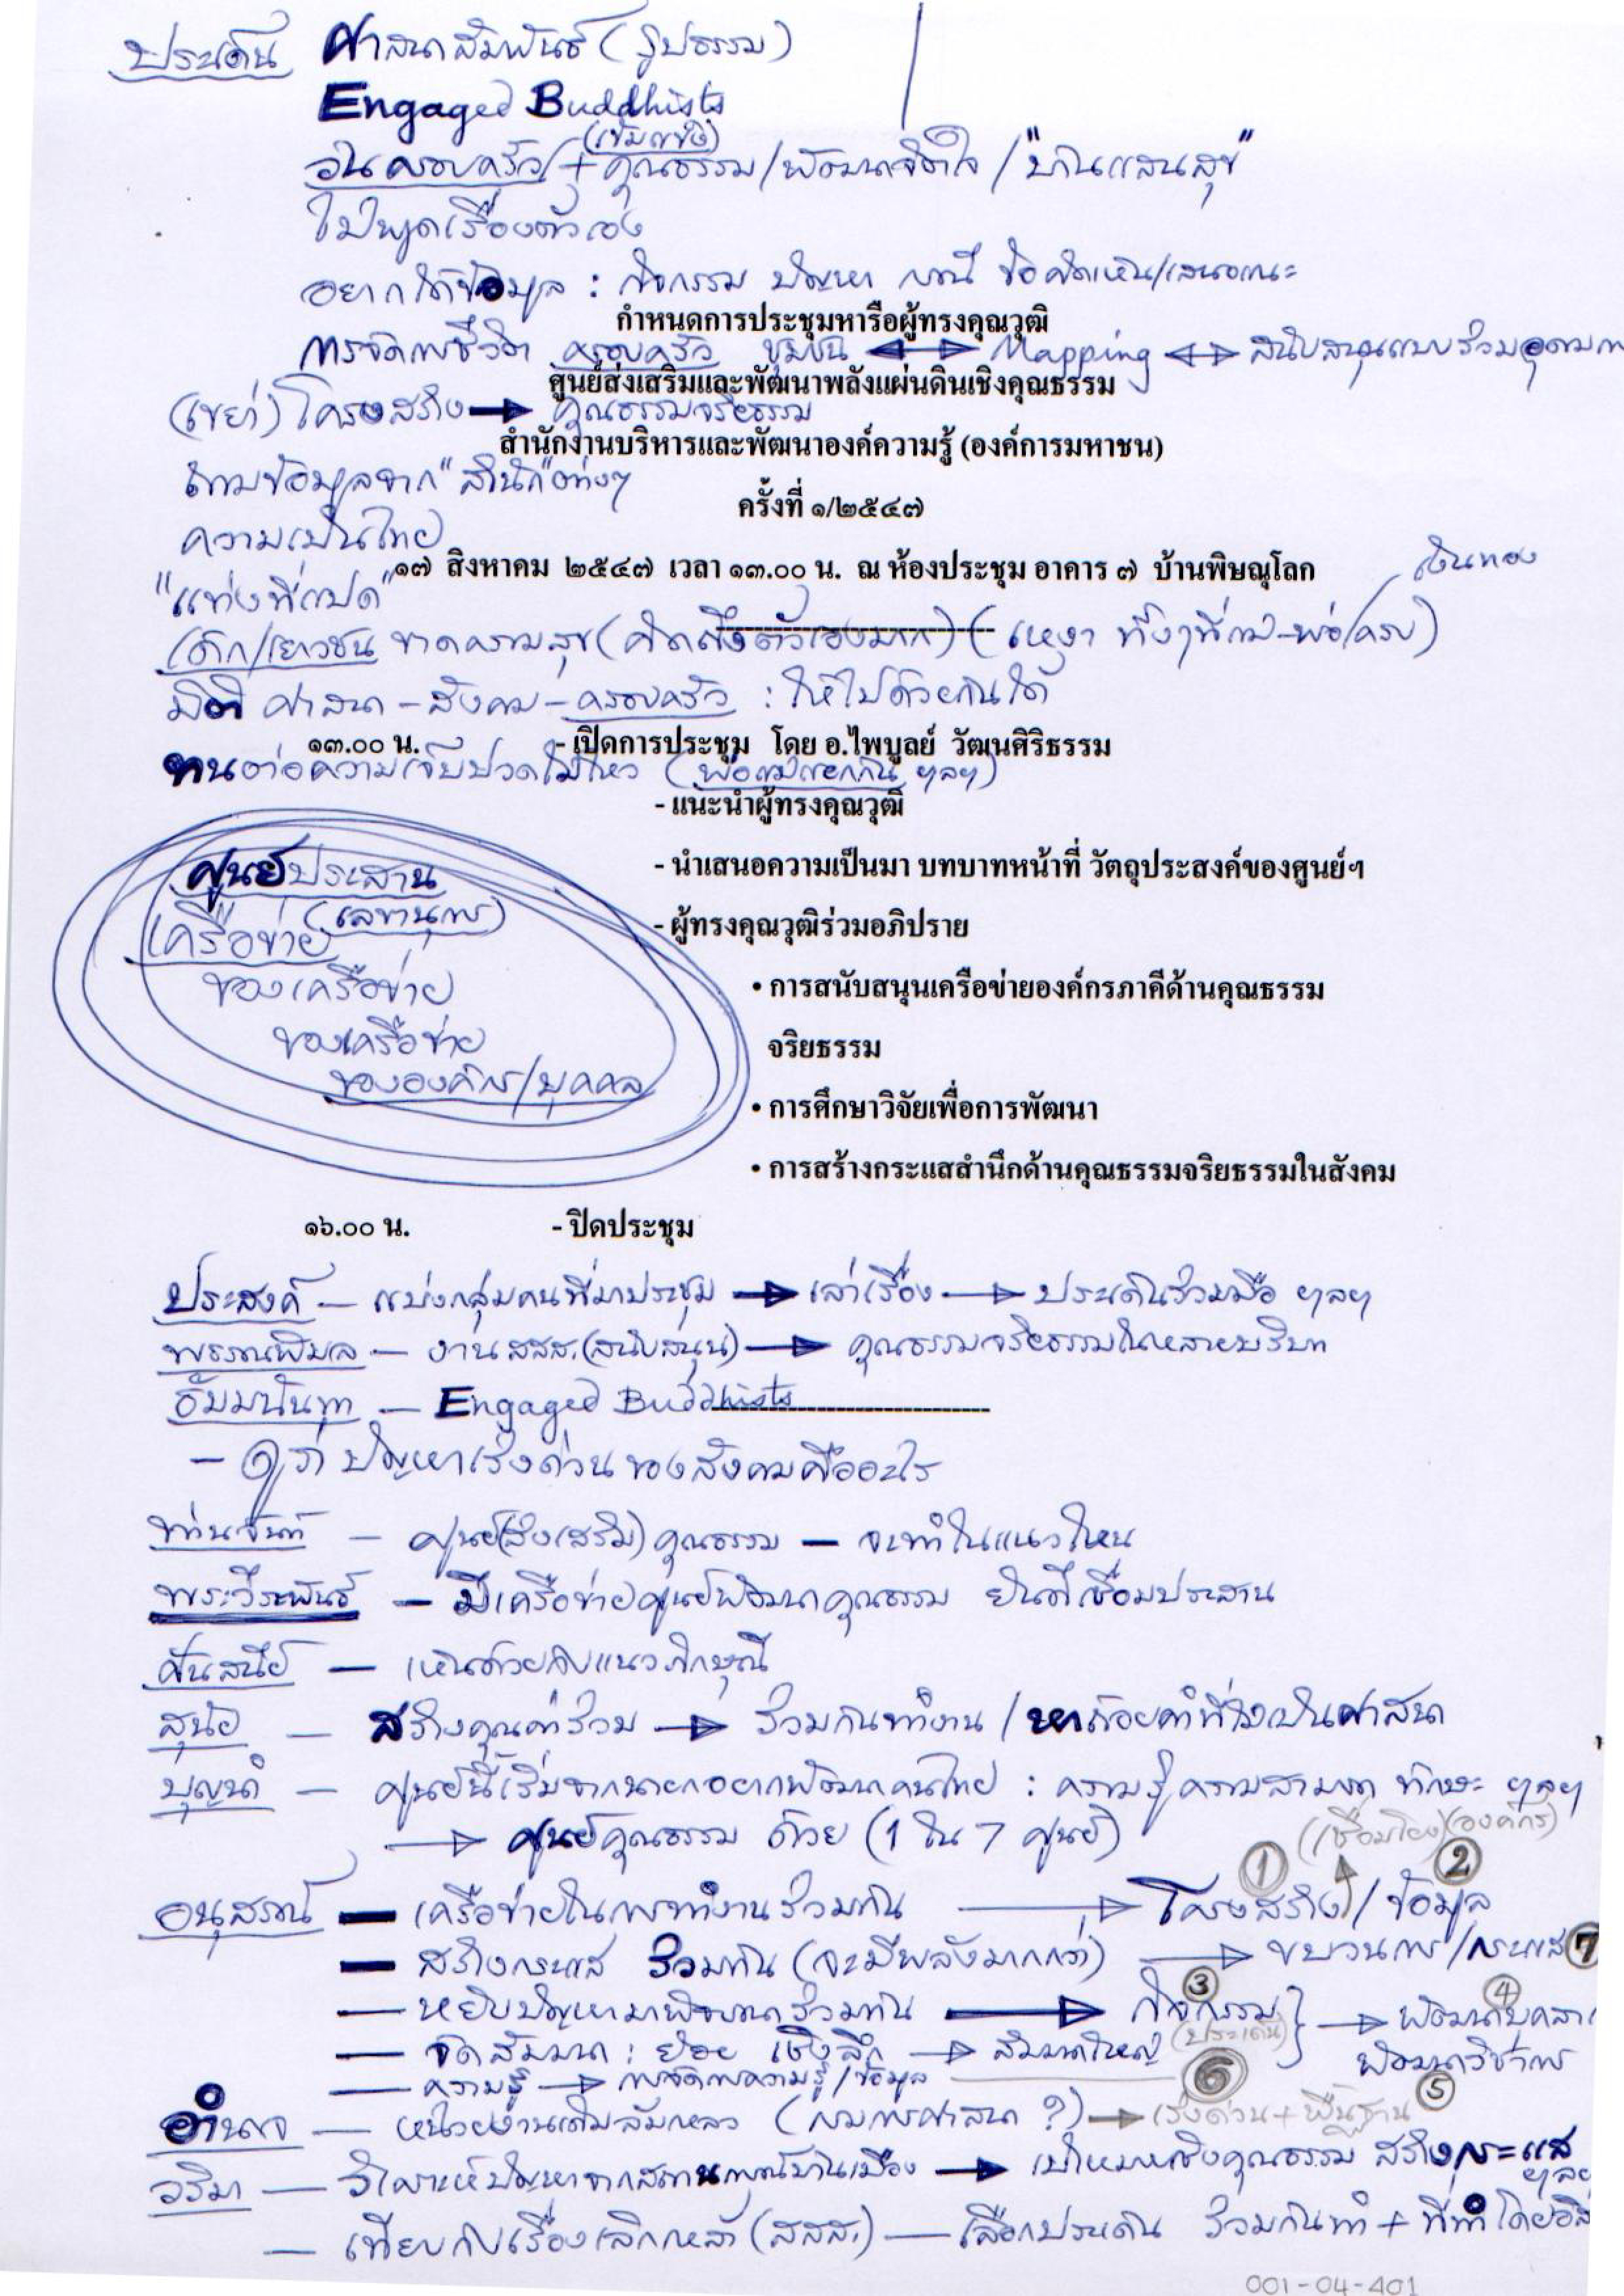 ประเด็น ศาสนสัมพันธ์ (รูปธรรม)
Engaged Buddhists
(เข้มแข็ง)
วันครอบครัว + คุณธรรม/พัฒนาจิตใจ / "บ้านแสนสุข"
ไม่พูดเรื่องตัวเอง
อยากได้ข้อมูล : กิจกรรม ปัญหา กรณี ข้อคิดเห็น/เสนอแนะ
กำหนดการประชุมหารือผู้ทรงคุณวุฒิ
การจัดการชีวิต ครอบครัว ชุมชน ↔ Mapping ↔ สนับสนุนแบบร่วม
ศูนย์ส่งเสริมและพัฒนาพลังแผ่นดินเชิงคุณธรรม
(เขย่า) โครงสร้าง → คุณธรรมจริยธรรม
สำนักงานบริหารและพัฒนาองค์ความรู้ (องค์การมหาชน)
ตามข้อมูลจาก "สำนัก" ต่างๆ
ครั้งที่ ๑/๒๕๔๗
ความเป็นไทย
๑๗ สิงหาคม ๒๕๔๗ เวลา ๑๓.๐๐ น. ณ ห้องประชุม อาคาร ๗ บ้านพิษณุโลก
เงินทอง
"แท่งที่แปด"
เด็ก/เยาวชน ขาดความสุข (คิดถึงตัวเองมาก) (เหงา ทั้งๆที่มี พ่อ/ครบ)
มิติ ศาสนา - สังคม - ครอบครัว : ให้ไปด้วยกันได้
๑๓.๐๐ น. - เปิดการประชุม โดย อ.ไพบูลย์ วัฒนศิริธรรม
ทนต่อความเจ็บปวดไม่ไหว (พ่อแม่แยกกัน ฯลฯ)
- แนะนำผู้ทรงคุณวุฒิ
- นำเสนอความเป็นมา บทบาทหน้าที่ วัตถุประสงค์ของศูนย์ฯ
- ผู้ทรงคุณวุฒิร่วมอภิปราย
• การสนับสนุนเครือข่ายองค์กรภาคีด้านคุณธรรม
จริยธรรม
• การศึกษาวิจัยเพื่อการพัฒนา
• การสร้างกระแสสำนึกด้านคุณธรรมจริยธรรมในสังคม
ศูนย์ประสาน
(เลขานุการ)
เครือข่าย
ของเครือข่าย
ของเครือข่าย
ขององค์กร/บุคคล
๑๖.๐๐ น. - ปิดประชุม
ประสงค์ — แบ่งกลุ่มคนที่มาประชุม → เล่าเรื่อง → ประเด็นร่วมมือ ฯลฯ
พรรณพิมล — งาน สสส. (สนับสนุน) → คุณธรรมจริยธรรมในหลายบริบท
ธัมมนันทา — Engaged Buddhists
— ดูว่า ปัญหาเร่งด่วนของสังคมคืออะไร
ท่านจันทร์ — ศูนย์(ส่งเสริม)คุณธรรม — จะทำในแนวไหน
พระวีระพันธ์ — มีเครือข่ายศูนย์พัฒนาคุณธรรม ยินดีเชื่อมประสาน
ศันสนีย์ — เห็นด้วยกับแนวภิกษุณี
สุนัย — สร้างคุณค่าร่วม → ร่วมกันทำงาน / หาถ้อยคำที่ไม่เป็นศาสนา
บุญนำ — ศูนย์นี้เริ่มจากนายกอยากพัฒนาคนไทย : ความรู้ความสามารถ ทักษะ ฯลฯ
→ ศูนย์คุณธรรม ด้วย (1 ใน 7 ศูนย์)
(เชื่อมโยง) (องค์กร)
① ②
อนุสรณ์ — เครือข่ายในการทำงานร่วมกัน → โครงสร้าง / ข้อมูล
— สร้างกระแส ร่วมกัน (จะมีพลังมากกว่า) → ขบวนการ/กระแส ⑦
— หยิบปัญหามาพิจารณาร่วมกัน → กิจกรรม ③ (ประเด็น) → พัฒนาบุคลา ④
— จัดสัมมนา : ย่อย เชิงลึก → สัมมนาใหญ่ พัฒนาวิชาการ ⑤
— ความรู้ → การจัดการความรู้/ข้อมูล ⑥
อำนาจ — หน่วยงานเดิมล้มเหลว (กรมการศาสนา ?) → เร่งด่วน + พื้นฐาน
วริมา — วิเคราะห์ปัญหาจากสถานการณ์บ้านเมือง → เป้าหมายเชิงคุณธรรม สร้างกระแส ฯลฯ
— เทียบกับเรื่องเลิกเหล้า (สสส.) — เลือกประเด็น ร่วมกันทำ + ที่ทำโดย
001-04-401